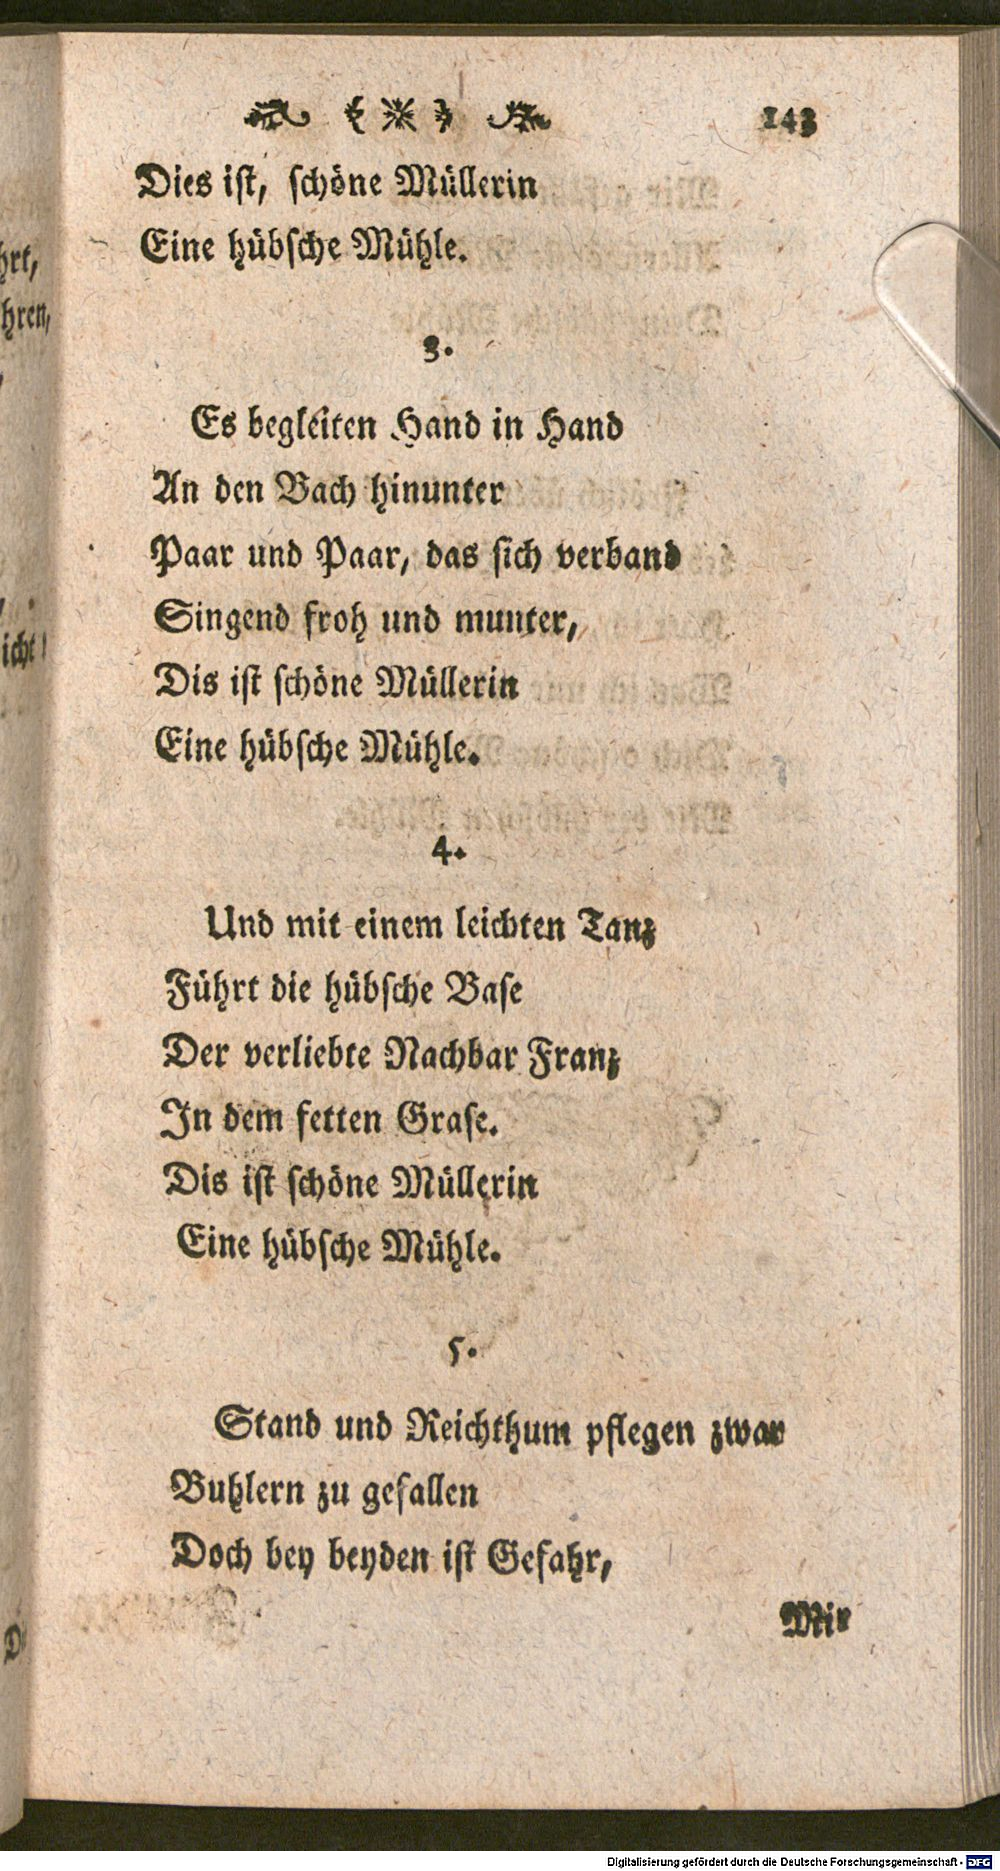 143
Dies ist, schöne Müllerin
Eine hübsche Mühle.
3.
Es begleiten Hand in Hand
An den Bach hinunter
Paar und Paar, das sich verband
Singend froh und munter,
Dis ist schöne Müllerin
Eine hübsche Mühle.
4.
Und mit einem leichten Tanz
Führt die hübsche Base
Der verliebte Nachbar Franz
In dem fetten Grase.
Dis ist schöne Müllerin
Eine hübsche Mühle.
5.
Stand und Reichthum pflegen zwar
Buhlern zu gefallen
Doch bey beyden ist Gefahr,
Mir
Digitalisierung gefördert durch die Deutsche Forschungsgemeinschaft - DFG